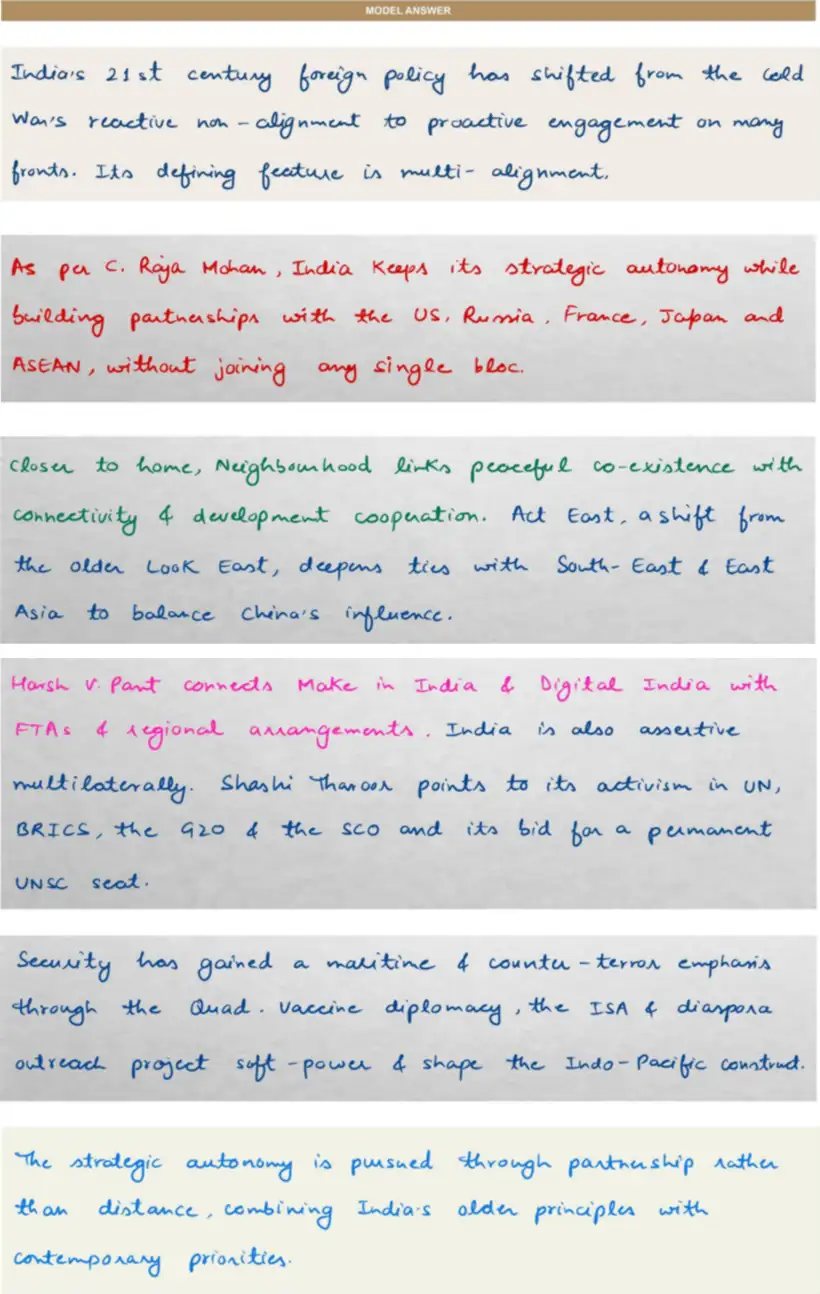 MODEL ANSWER
India's 21st century foreign policy has shifted from the Cold
War's reactive non-alignment to proactive engagement on many
fronts. Its defining feature is multi-alignment.
As per C. Raja Mohan, India keeps its strategic autonomy while
building partnerships with the US, Russia, France, Japan and
ASEAN, without joining any single bloc.
Closer to home, Neighbourhood links peaceful co-existence with
connectivity & development cooperation. Act East, a shift from
the older Look East, deepens ties with South-East & East
Asia to balance China's influence.
Harsh V. Pant connects Make in India & Digital India with
FTAs & regional arrangements. India is also assertive
multilaterally. Shashi Tharoor points to its activism in UN,
BRICS, the G20 & the SCO and its bid for a permanent
UNSC seat.
Security has gained a maritime & counter-terror emphasis
through the Quad. Vaccine diplomacy, the ISA & diaspora
outreach project soft-power & shape the Indo-Pacific construct.
The strategic autonomy is pursued through partnership rather
than distance, combining India's older principles with
contemporary priorities.